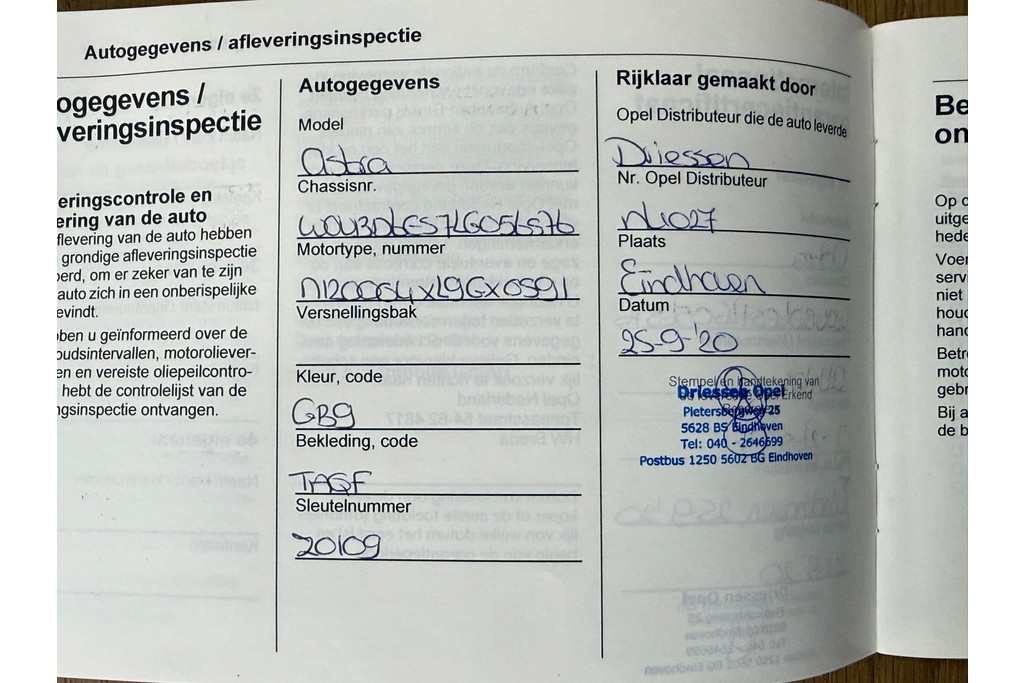 Autogegevens / afleveringsinspectie
ogegevens /
veringsinspectie
eringscontrole en
ering van de auto
flevering van de auto hebben
grondige afleveringsinspectie
erd, om er zeker van te zijn
auto zich in een onberispelijke
evindt.
ben u geïnformeerd over de
oudsintervallen, motoroliever-
en en vereiste oliepeilcontro-
hebt de controlelijst van de
gsinspectie ontvangen.
Autogegevens
Model
Astra
Chassisnr.
W0V3D6ES7LG056576
Motortype, nummer
N120004XL9GX0591
Versnellingsbak
Kleur, code
GB9
Bekleding, code
TAQF
Sleutelnummer
20109
Rijklaar gemaakt door
Opel Distributeur die de auto leverde
Driessen
Nr. Opel Distributeur
NL027
Plaats
Eindhoven
Datum
25-9-'20
Stempel en handtekening van
Driessen Opel
Erkend
Pietersbergweg 25
5628 BS Eindhoven
Tel: 040 - 2646699
Postbus 1250 5602 BG Eindhoven
Be
on
Op d
uitge
hede
Voer
servi
niet
houd
hand
Betr
moto
gebr
Bij a
de b